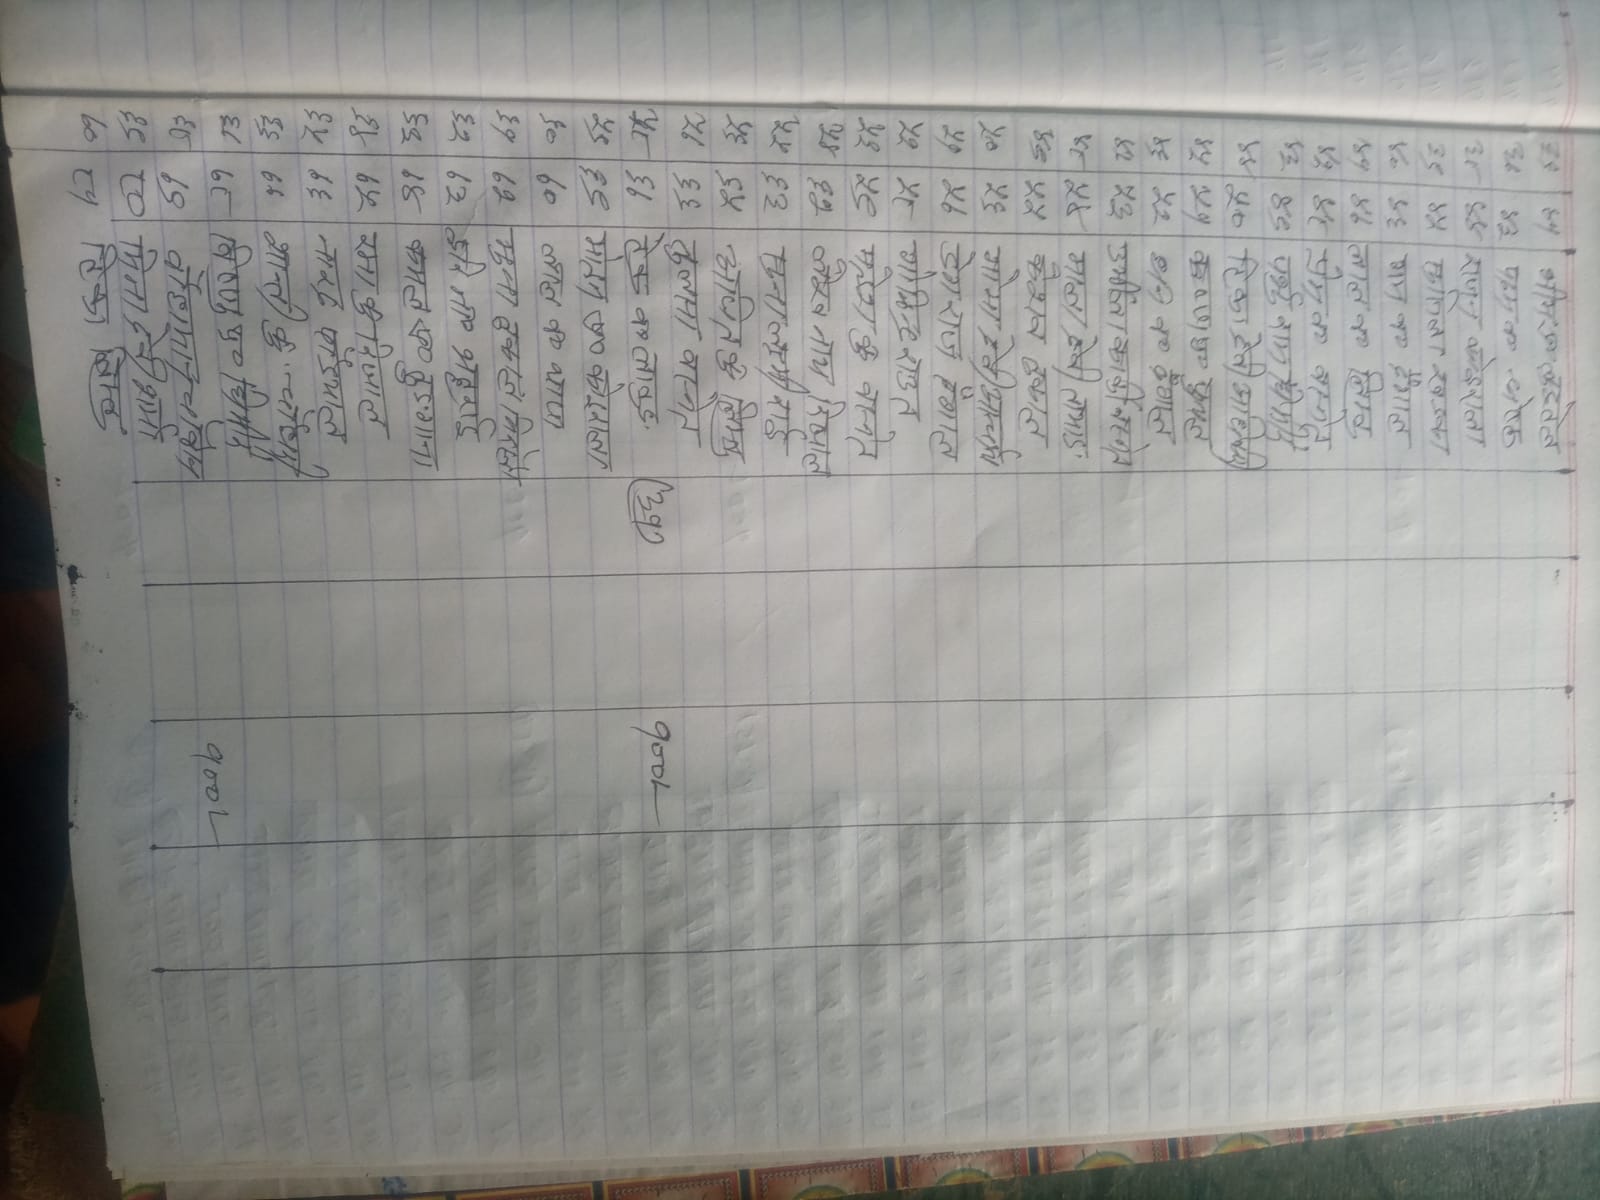 ३६ ४१ भीम प्र० लुइटेल
३७ ४३ पदम ब० श्रेष्ठ
३८ ४४ राजन कोइराला
३९ ४५ खड्का
४० ४६ ब० दंगाल
४१ ४७ लाल ब० लिम्बु
४२ ४८ प्रेम ब० बस्नेत
४३ ४९ राम घिमिरे
४४ ५० टिका देवी अधिकारी
४५ ५१ कृष्ण प्र० दुलाल
४६ ५२ ब० दंगाल
४७ ५३ उर्मिला कार्की बस्नेत
४८ ५४ माला देवी तामाङ
४९ ५५ केशव ढकाल
५० ५६ गोमा देवी आचार्य
५१ ५७ डेग राज दंगाल
५२ ५८ गोविन्द राउत
५३ ५९ महेश कु बस्नेत
५४ ६२ लेख नाथ रिजाल
५५ ६३ लक्ष्मी राई
५६ ६५ अजित कु लिम्बु
५७ ६६ तुलसा बस्नेत
५८ ६७ टेक ब० लावङ (३१) १००/-
५९ ६९ मोहन प्र० कोइराला
६० ७० लाल ब० थापा
६१ ७२ मुना ढकाल निरौला
६२ ७३ हरि ना० भट्टराई
६३ ७४ कमल प्र० ढुङगाना
६४ ७५ रमा कु रिजाल
६५ ७६ नारद पौडयाल
६६ ७७ शान्ती कु. चौधरी
६७ ७८ बिष्णु प्र० घिमिरे
६८ ७९ १००/-
६९ ८० मिना देवी शर्मा
७० ८१ टिका लिम्बु